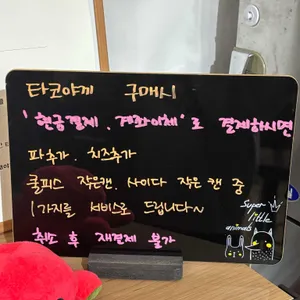 타코야끼 구매시
'현금결제, 계좌이체'로 결제하시면
파추가, 치즈추가
쿨피스 작은캔, 사이다 작은 캔 중
1가지를 서비스로 드립니다~
취소 후 재결제 불가
Super
little
animals